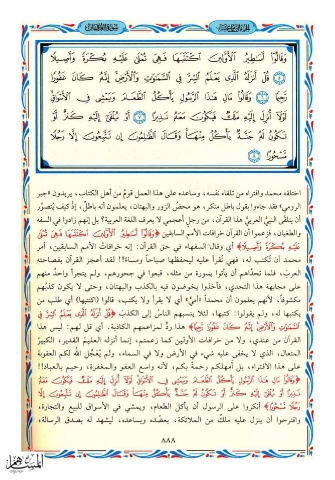 وَقَالُوٓا۟ أَسَـٰطِيرُ ٱلْأَوَّلِينَ ٱكْتَتَبَهَا فَهِىَ تُمْلَىٰ عَلَيْهِ بُكْرَةً وَأَصِيلًا
۝٥ قُلْ أَنزَلَهُ ٱلَّذِى يَعْلَمُ ٱلسِّرَّ فِى ٱلسَّمَـٰوَٰتِ وَٱلْأَرْضِ إِنَّهُۥ كَانَ غَفُورًا
رَّحِيمًا ۝٦ وَقَالُوا۟ مَالِ هَـٰذَا ٱلرَّسُولِ يَأْكُلُ ٱلطَّعَامَ وَيَمْشِى فِى ٱلْأَسْوَاقِ
لَوْلَآ أُنزِلَ إِلَيْهِ مَلَكٌ فَيَكُونَ مَعَهُۥ نَذِيرًا ۝٧ أَوْ يُلْقَىٰٓ إِلَيْهِ كَنزٌ أَوْ
تَكُونُ لَهُۥ جَنَّةٌ يَأْكُلُ مِنْهَا وَقَالَ ٱلظَّـٰلِمُونَ إِن تَتَّبِعُونَ إِلَّا رَجُلًا
مَّسْحُورًا ۝٨
اختلقه محمد وافتراه من تلقاء نفسه، وساعده على هذا العمل قومٌ من أهل الكتاب، يريدون «جبر
الرومي» فقد جاءوا بقول باطل منكر، هو محض الزور والبهتان، يعلمون أنه باطلٌ، إذْ كيف يُتصوَّر
أن يتلقَّى النبيُّ العربيُّ هذا القرآن، من رجلٍ أعجمي لا يعرف اللغة العربية؟ بل إنهم زادوا في السفه
والطغيان، فزعموا أن القرآن خرافات الأمم السابقين ﴿وَقَالُوٓا۟ أَسَـٰطِيرُ ٱلْأَوَّلِينَ ٱكْتَتَبَهَا فَهِىَ تُمْلَىٰ
عَلَيْهِ بُكْرَةً وَأَصِيلًا﴾ أي وقال السفهاء في حق القرآن: إنه خرافات الأمم السابقين، أمر
محمد أن تُكتب له، فهي تُقرأ عليه ليحفظها صباحاً ومساءً!! لقد أعجز القرآن بفصاحته
العربَ، فلما تحدَّاهم أن يأتوا بسورة من مثله، قبعوا في جحورهم، ولم يتجرأ واحدٌ منهم
على مجابهة هذا التحدي، فأخذوا يخوضون فيه بالكذب والبهتان، وحتى لا يكون كذبُهم
مكشوفاً، لأنهم يعلمون أن محمداً «أميٌّ» أي لا يقرأ ولا يكتب، قالوا (اكتتبها) أي طلب من
يكتبها له، ولم يقولوا: كتبها، لئلا ينسبهم الناسُ إلى الكذب ﴿قُلْ أَنزَلَهُ ٱلَّذِى يَعْلَمُ ٱلسِّرَّ فِى
ٱلسَّمَـٰوَٰتِ وَٱلْأَرْضِ إِنَّهُۥ كَانَ غَفُورًا رَّحِيمًا﴾ هذا ردٌّ لمزاعمهم الكاذبة. أي قل لهم: ليس هذا
القرآن من عندي، ولا من خرافات الأولين كما زعمتم، إنما أنزله العليمُ القدير، الكبيرُ
المتعال، الذي لا يخفى عليه شيء في الأرض ولا في السماء، ولم يُعَجِّل الله لكم العقوبة
على هذا الافتراء، بل أمهلكم رحمةً بكم، لأنه واسع العفو والمغفرة، رحيم بالعباد!!
﴿وَقَالُوا۟ مَالِ هَـٰذَا ٱلرَّسُولِ يَأْكُلُ ٱلطَّعَامَ وَيَمْشِى فِى ٱلْأَسْوَاقِ لَوْلَآ أُنزِلَ إِلَيْهِ مَلَكٌ فَيَكُونَ مَعَهُۥ
نَذِيرًا أَوْ يُلْقَىٰٓ إِلَيْهِ كَنزٌ أَوْ تَكُونُ لَهُۥ جَنَّةٌ يَأْكُلُ مِنْهَا وَقَالَ ٱلظَّـٰلِمُونَ إِن تَتَّبِعُونَ إِلَّا
رَجُلًا مَّسْحُورًا﴾ أنكروا على الرسول أن يأكل الطعام، ويمشي في الأسواق للبيع والتجارة،
واقترحوا أن ينزل عليه ملكٌ من الملائكة، يعضّده ويساعده، ليشهد له بصدق الرسالة،
٨٨٨